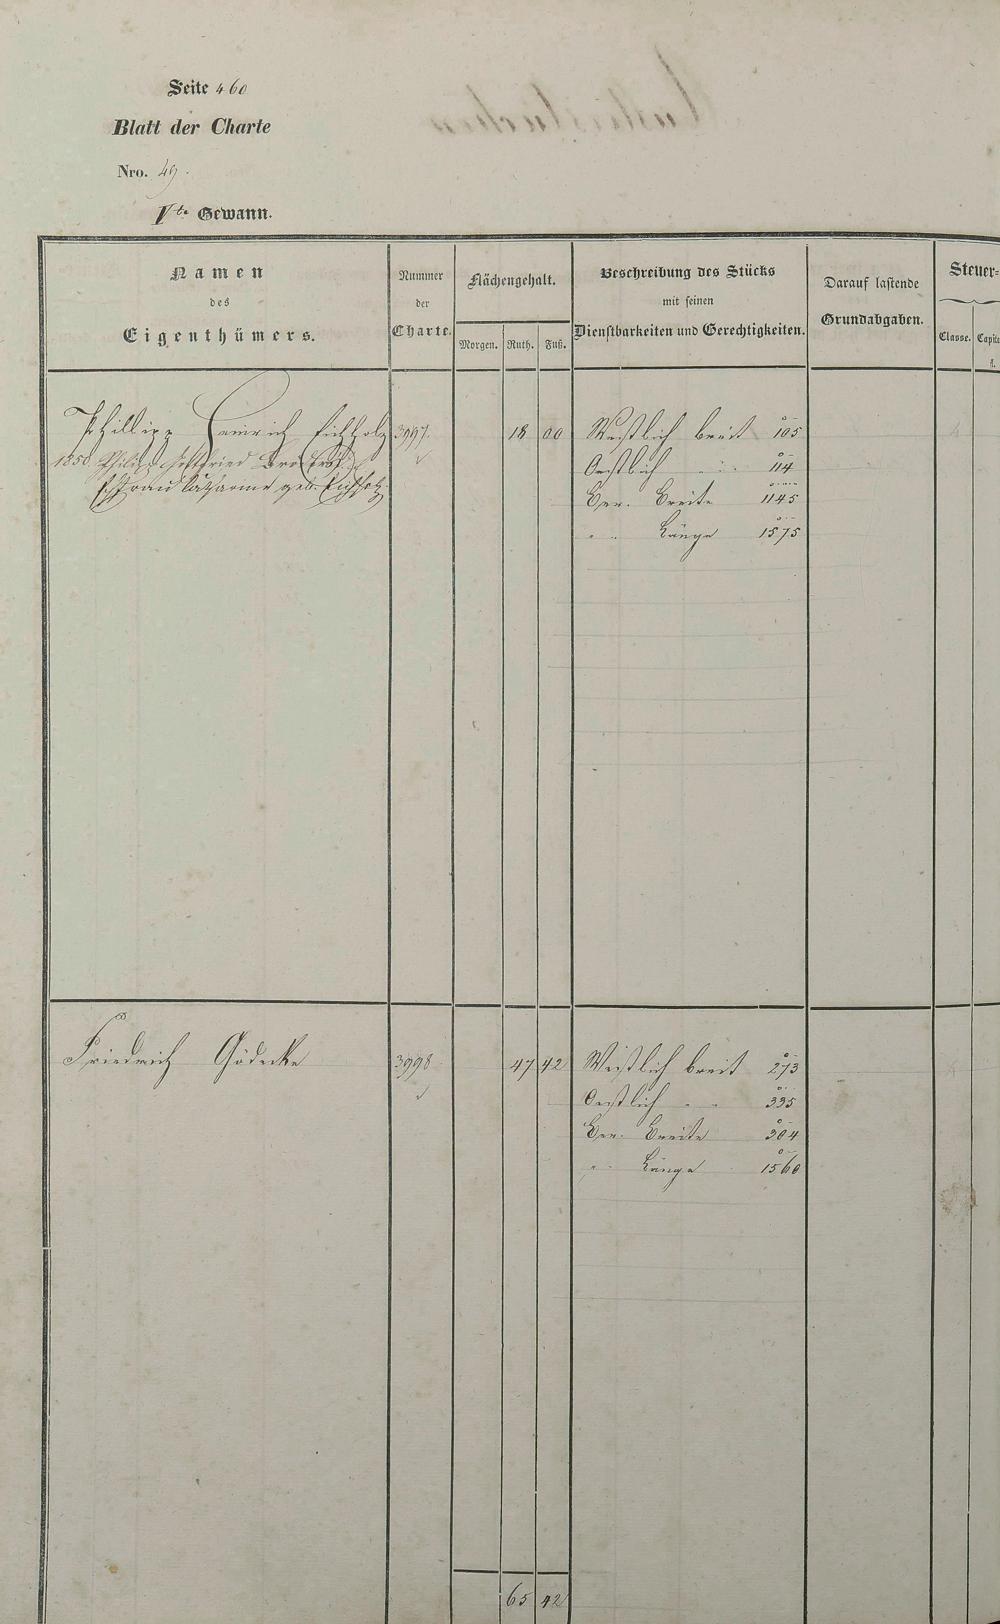 Seite 460
Blatt der Charte
Nro. 49.
Vte Gewann.
Namen
des
Eigenthümers.
Nummer
der
Charte.
Flächengehalt.
Morgen. Ruth. Fuß.
Beschreibung des Stücks
mit seinen
Dienstbarkeiten und Gerechtigkeiten.
Darauf lastende
Grundabgaben.
Steuer-
Classe. Capita
fl.
Phillipp Heinrich Eichholz 3997. 18 00 Westlich breit 105
1850. Philipp Gottfried
Oestlich " " 114
Ehefrau Catharine geb. Eichholz
Ver. Breite 1145
" Länge 1575
Friedrich Gödecke 3998 47 42 Westlich breit 273
Oestlich " " 335
Ver. Breite 304
" Länge 1560
65 42